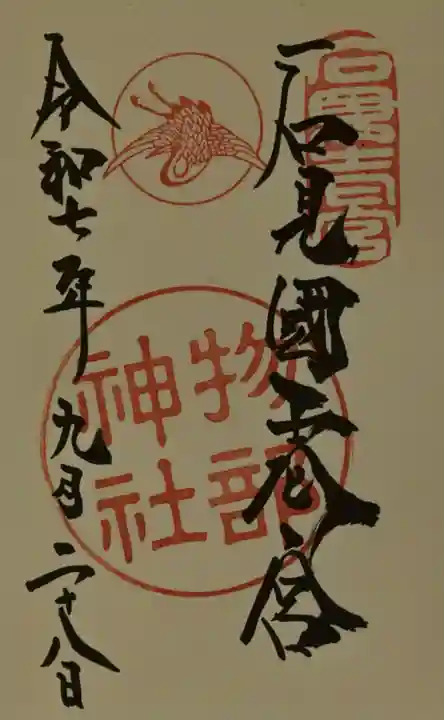 石見國一宮
石見國一之宮
物部
神社
令和七年九月二十八日